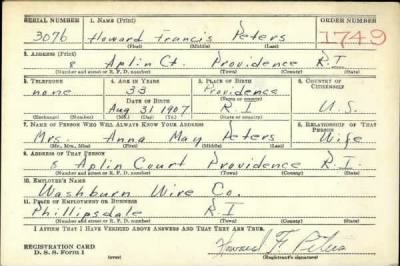 SERIAL NUMBER 1. NAME (Print) ORDER NUMBER
3076 Howard Francis Peters 1749
(First) (Middle) (Last)
2. ADDRESS (Print)
8 Aplin Ct. Providence R.I
(Number and street or R. F. D. number) (Town) (County) (State)
3. TELEPHONE 4. AGE IN YEARS 5. PLACE OF BIRTH 6. COUNTRY OF CITIZENSHIP
none 33 Providence
(Town or county)
DATE OF BIRTH
Aug 31 1907 R I U.S.
(Exchange) (Number) (Mo.) (Day) (Yr.) (State or country)
7. NAME OF PERSON WHO WILL ALWAYS KNOW YOUR ADDRESS 8. RELATIONSHIP OF THAT PERSON
Mrs. Anna May Peters Wife
(Mr., Mrs., Miss) (First) (Middle) (Last)
9. ADDRESS OF THAT PERSON
8 Aplin Court Providence R.I.
(Number and street or R. F. D. number) (Town) (County) (State)
10. EMPLOYER'S NAME
Washburn Wire Co.
11. PLACE OF EMPLOYMENT OR BUSINESS
Phillipsdale R.I
(Number and street or R. F. D. number) (Town) (County) (State)
I AFFIRM THAT I HAVE VERIFIED ABOVE ANSWERS AND THAT THEY ARE TRUE.
REGISTRATION CARD
D. S. S. Form 1 (over) Howard F Peters
(Registrant's signature)